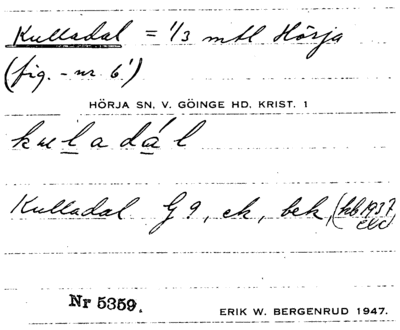 Kulladal = 1/3 mtl Hörja
(fig. - nr. 6')
HÖRJA SN, V. GÖINGE HD. KRIST. 1
kuladál
Kulladal G 9, ek, bek, (kb 1937
etc)
Nr 5359.
ERIK W. BERGENRUD 1947.